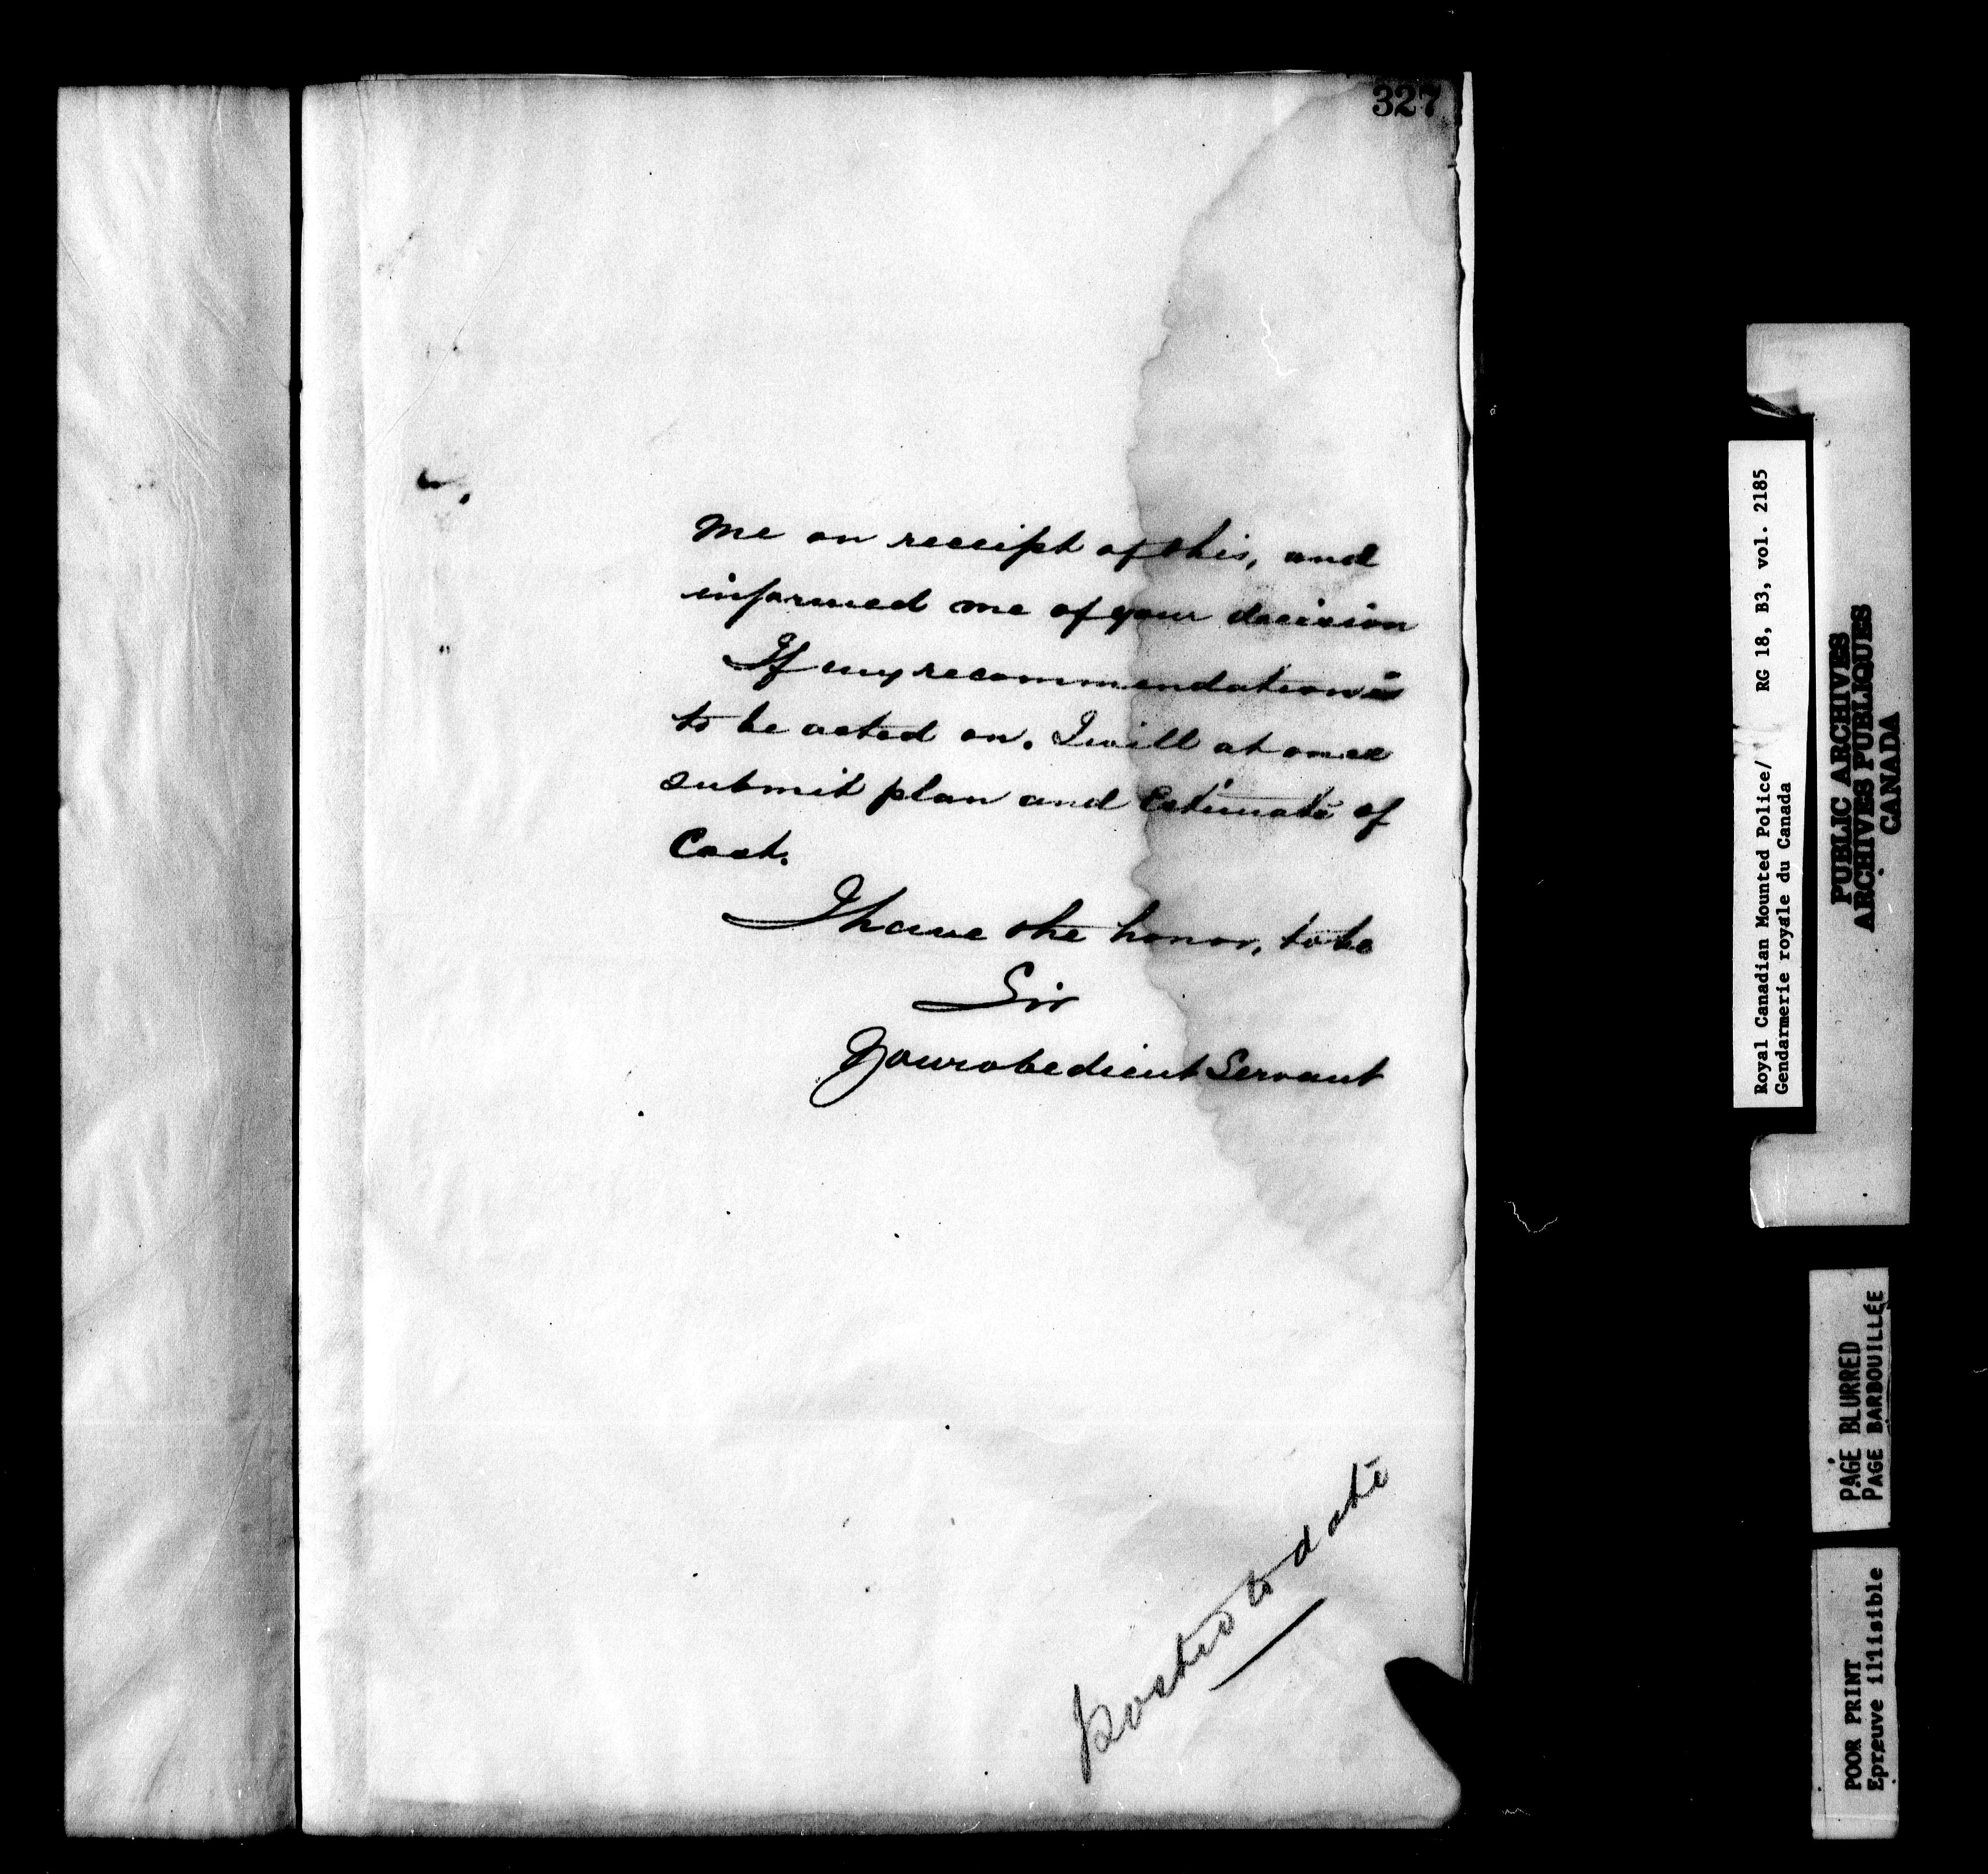 327
me on receipt of this, and
informed me of your decision
If my recommendation is
to be acted on. I will at once
submit plan and Estimate of
Cost.
I have the honor, to be
Sir
Your obedient Servant
posted to date
Royal Canadian Mounted Police/ RG 18, B3, vol. 2185
Gendarmerie royale du Canada
PUBLIC ARCHIVES
ARCHIVES PUBLIQUES
CANADA
PAGE BLURRED
PAGE BARBOUILLÉE
POOR PRINT
Epreuve illisible